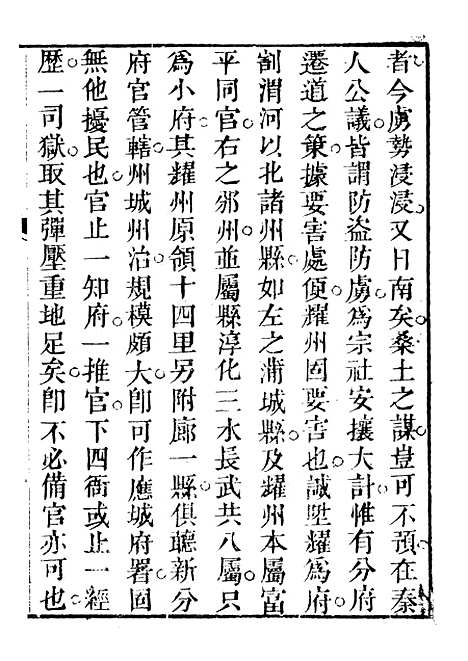 者今虜勢浸浸又日南矣桑土之謀豈可不預在秦
人公議皆謂防盜防虜為宗社安攘大計惟有分府
遷道之策據要害處便耀州固要害也誠陞耀為府
割渭河以北諸州縣如左之蒲城縣及耀州本屬富
平同官右之邠州並屬縣淳化三水長武共八屬只
為小府其耀州原領十四里另附廊一縣俱聽新分
府官管轄州城州治規模頗大卽可作應城府署固
無他擾民也官止一知府一推官下四衙或止一經
歷一司獄取其彈壓重地足矣卽不必備官亦可也